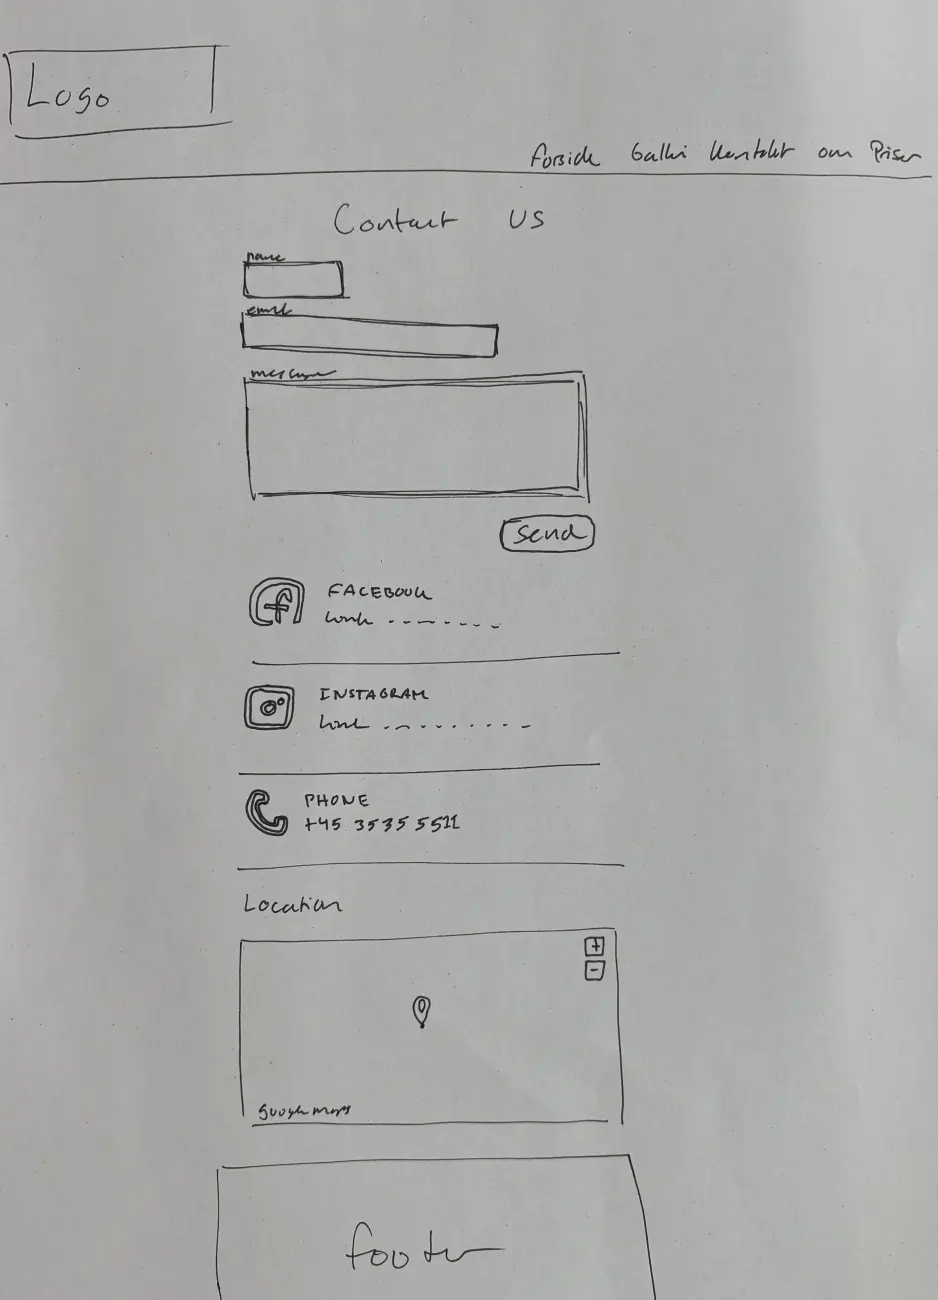 Logo
Forside Galleri Kontakt om Priser
Contact US
name
email
message
Send
f
FACEBOOK
Link
INSTAGRAM
Link
PHONE
+45 3535 5511
Location
+
-
Google maps
footer